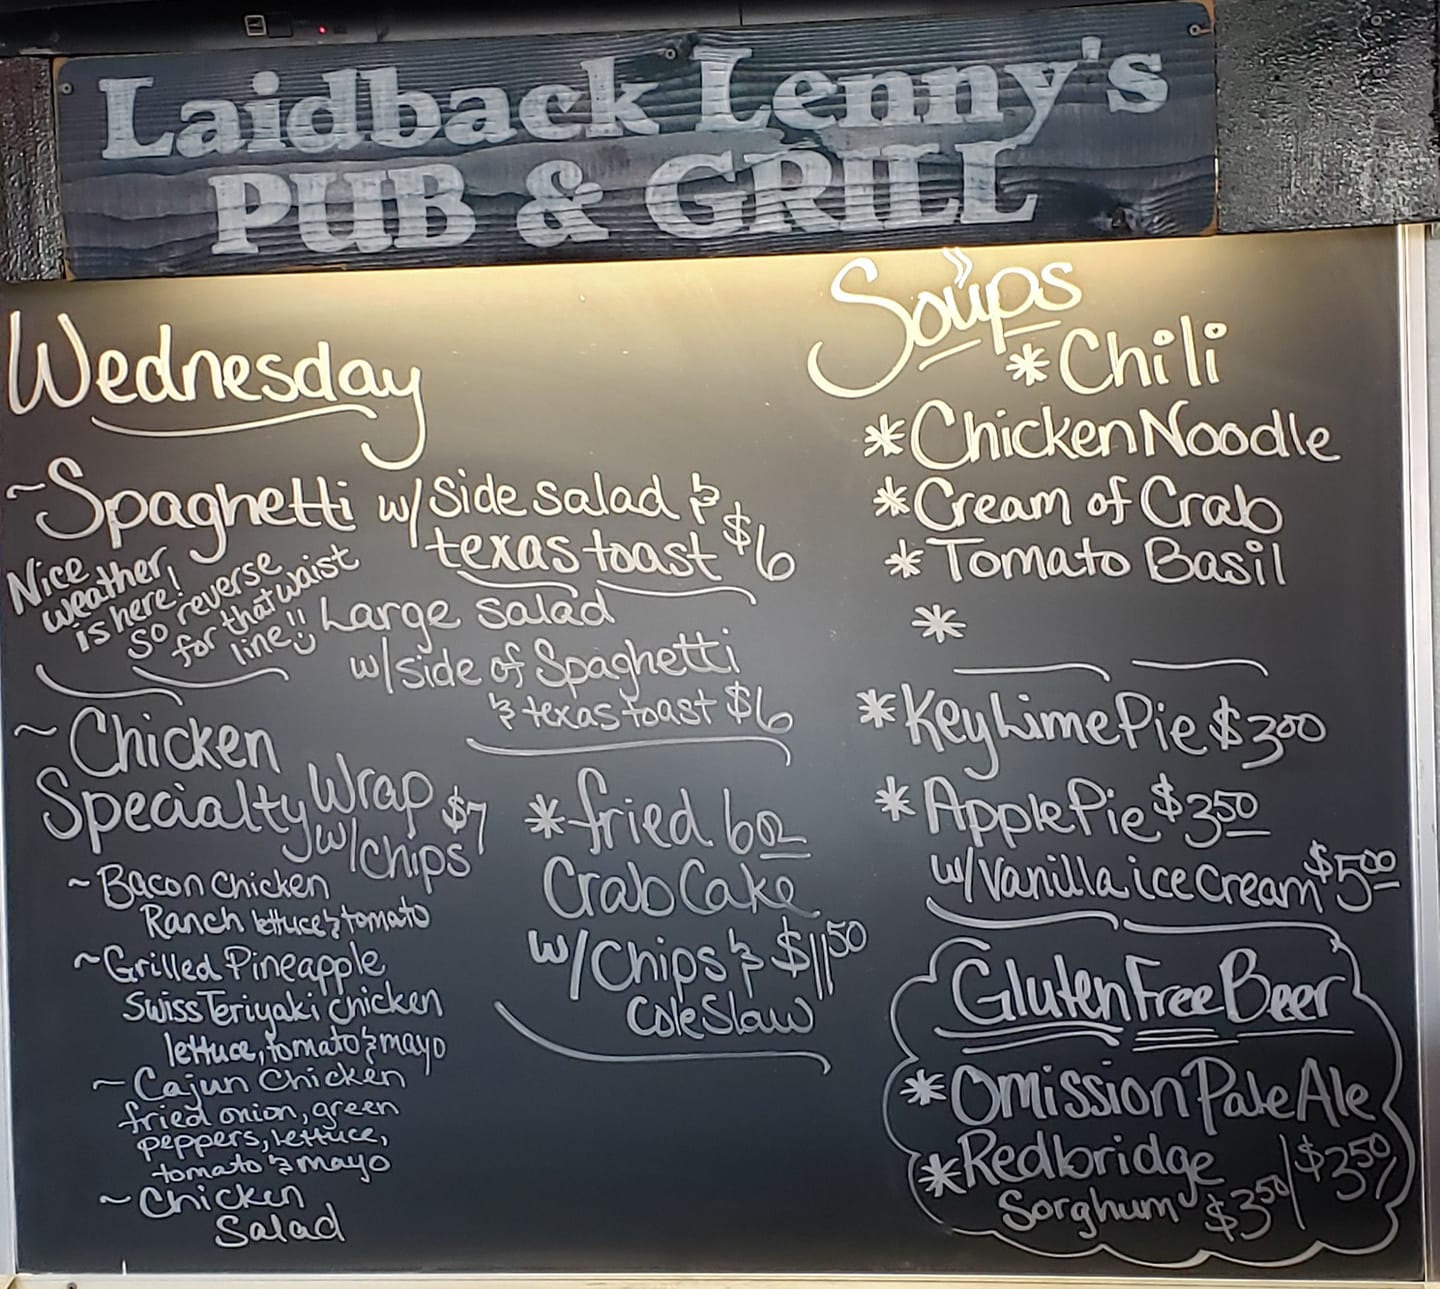 Laidback Lenny's
PUB & GRILL
Wednesday
~Spaghetti w/ side salad &
texas toast $6
Nice
weather
is here!
so reverse
for that waist
line!!
Large salad
w/side of Spaghetti
& texas toast $6
~Chicken
Specialty Wrap $7
w/chips
~Bacon Chicken
Ranch lettuce & tomato
~Grilled Pineapple
Swiss Teriyaki chicken
lettuce, tomato & mayo
~Cajun Chicken
fried onion, green
peppers, lettuce,
tomato & mayo
~Chicken
Salad
*fried 6oz
Crab Cake
w/Chips & $11.50
ColeSlaw
Soups
*Chili
*Chicken Noodle
*Cream of Crab
*Tomato Basil
*
*Key Lime Pie $3.00
*Apple Pie $3.50
w/Vanilla ice cream $5.00
Gluten Free Beer
*Omission Pale Ale
*Redbridge
Sorghum $3.50/$3.50